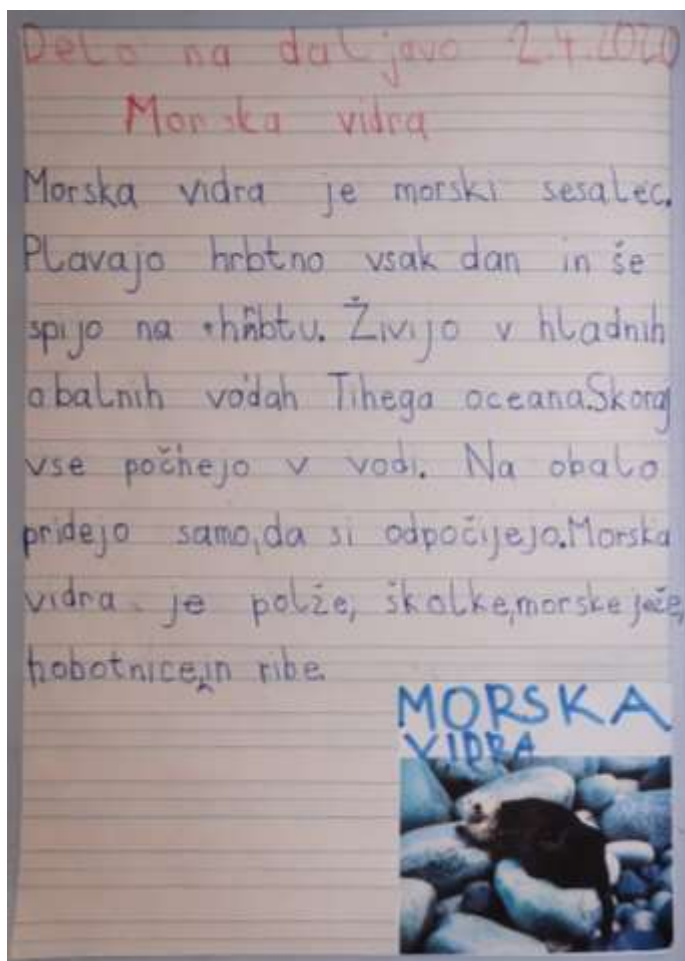 Delo na daljavo 2.4.2020
Morska vidra
Morska vidra je morski sesalec.
Plavajo hrbtno vsak dan in še
spijo na hrbtu. Živijo v hladnih
obalnih vodah Tihega oceana.Skoraj
vse počnejo v vodi. Na obalo
pridejo samo,da si odpočijejo.Morska
vidra je polže, školke,morske ježe,
hobotnice,in ribe.
MORSKA
VIDRA